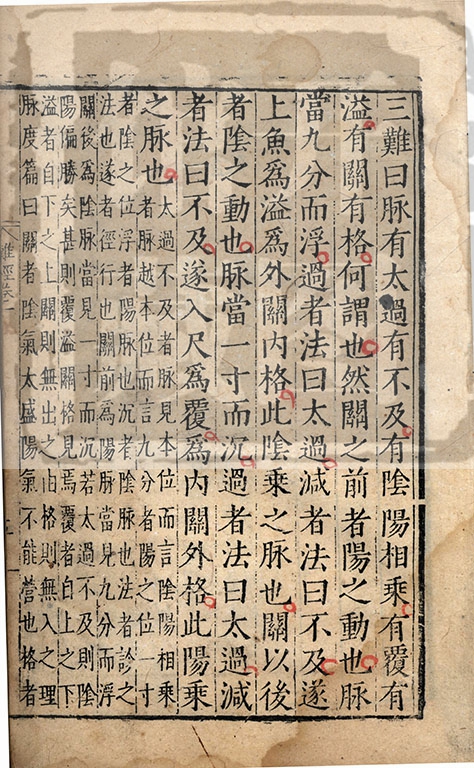 三難曰脉有太過有不及有陰陽相乘有覆有
溢有關有格何謂也然關之前者陽之動也脉
當九分而浮過者法曰太過減者法曰不及遂
上魚爲溢爲外關內格此陰乘之脉也關以後
者陰之動也脉當一寸而沉過者法曰太過減
者法曰不及遂入尺爲覆爲內關外格此陽乘
之脉也太過不及者脉見本位而言陰陽相乘
者脉越本位而言九分者陽之位一寸
者陰之位浮者陽脉也沉者陰脉也法者診之
法也遂者徑行也關前爲陽脉當見九分而浮
關後爲陰脉當見一寸而沉若太過不及則陰
陽偏勝矣甚則覆溢關格見焉覆者自上之下
溢者自下之上關則無出之由格則無入之理
脉度篇曰關者陰氣太盛陽氣不能營也格者
難經卷